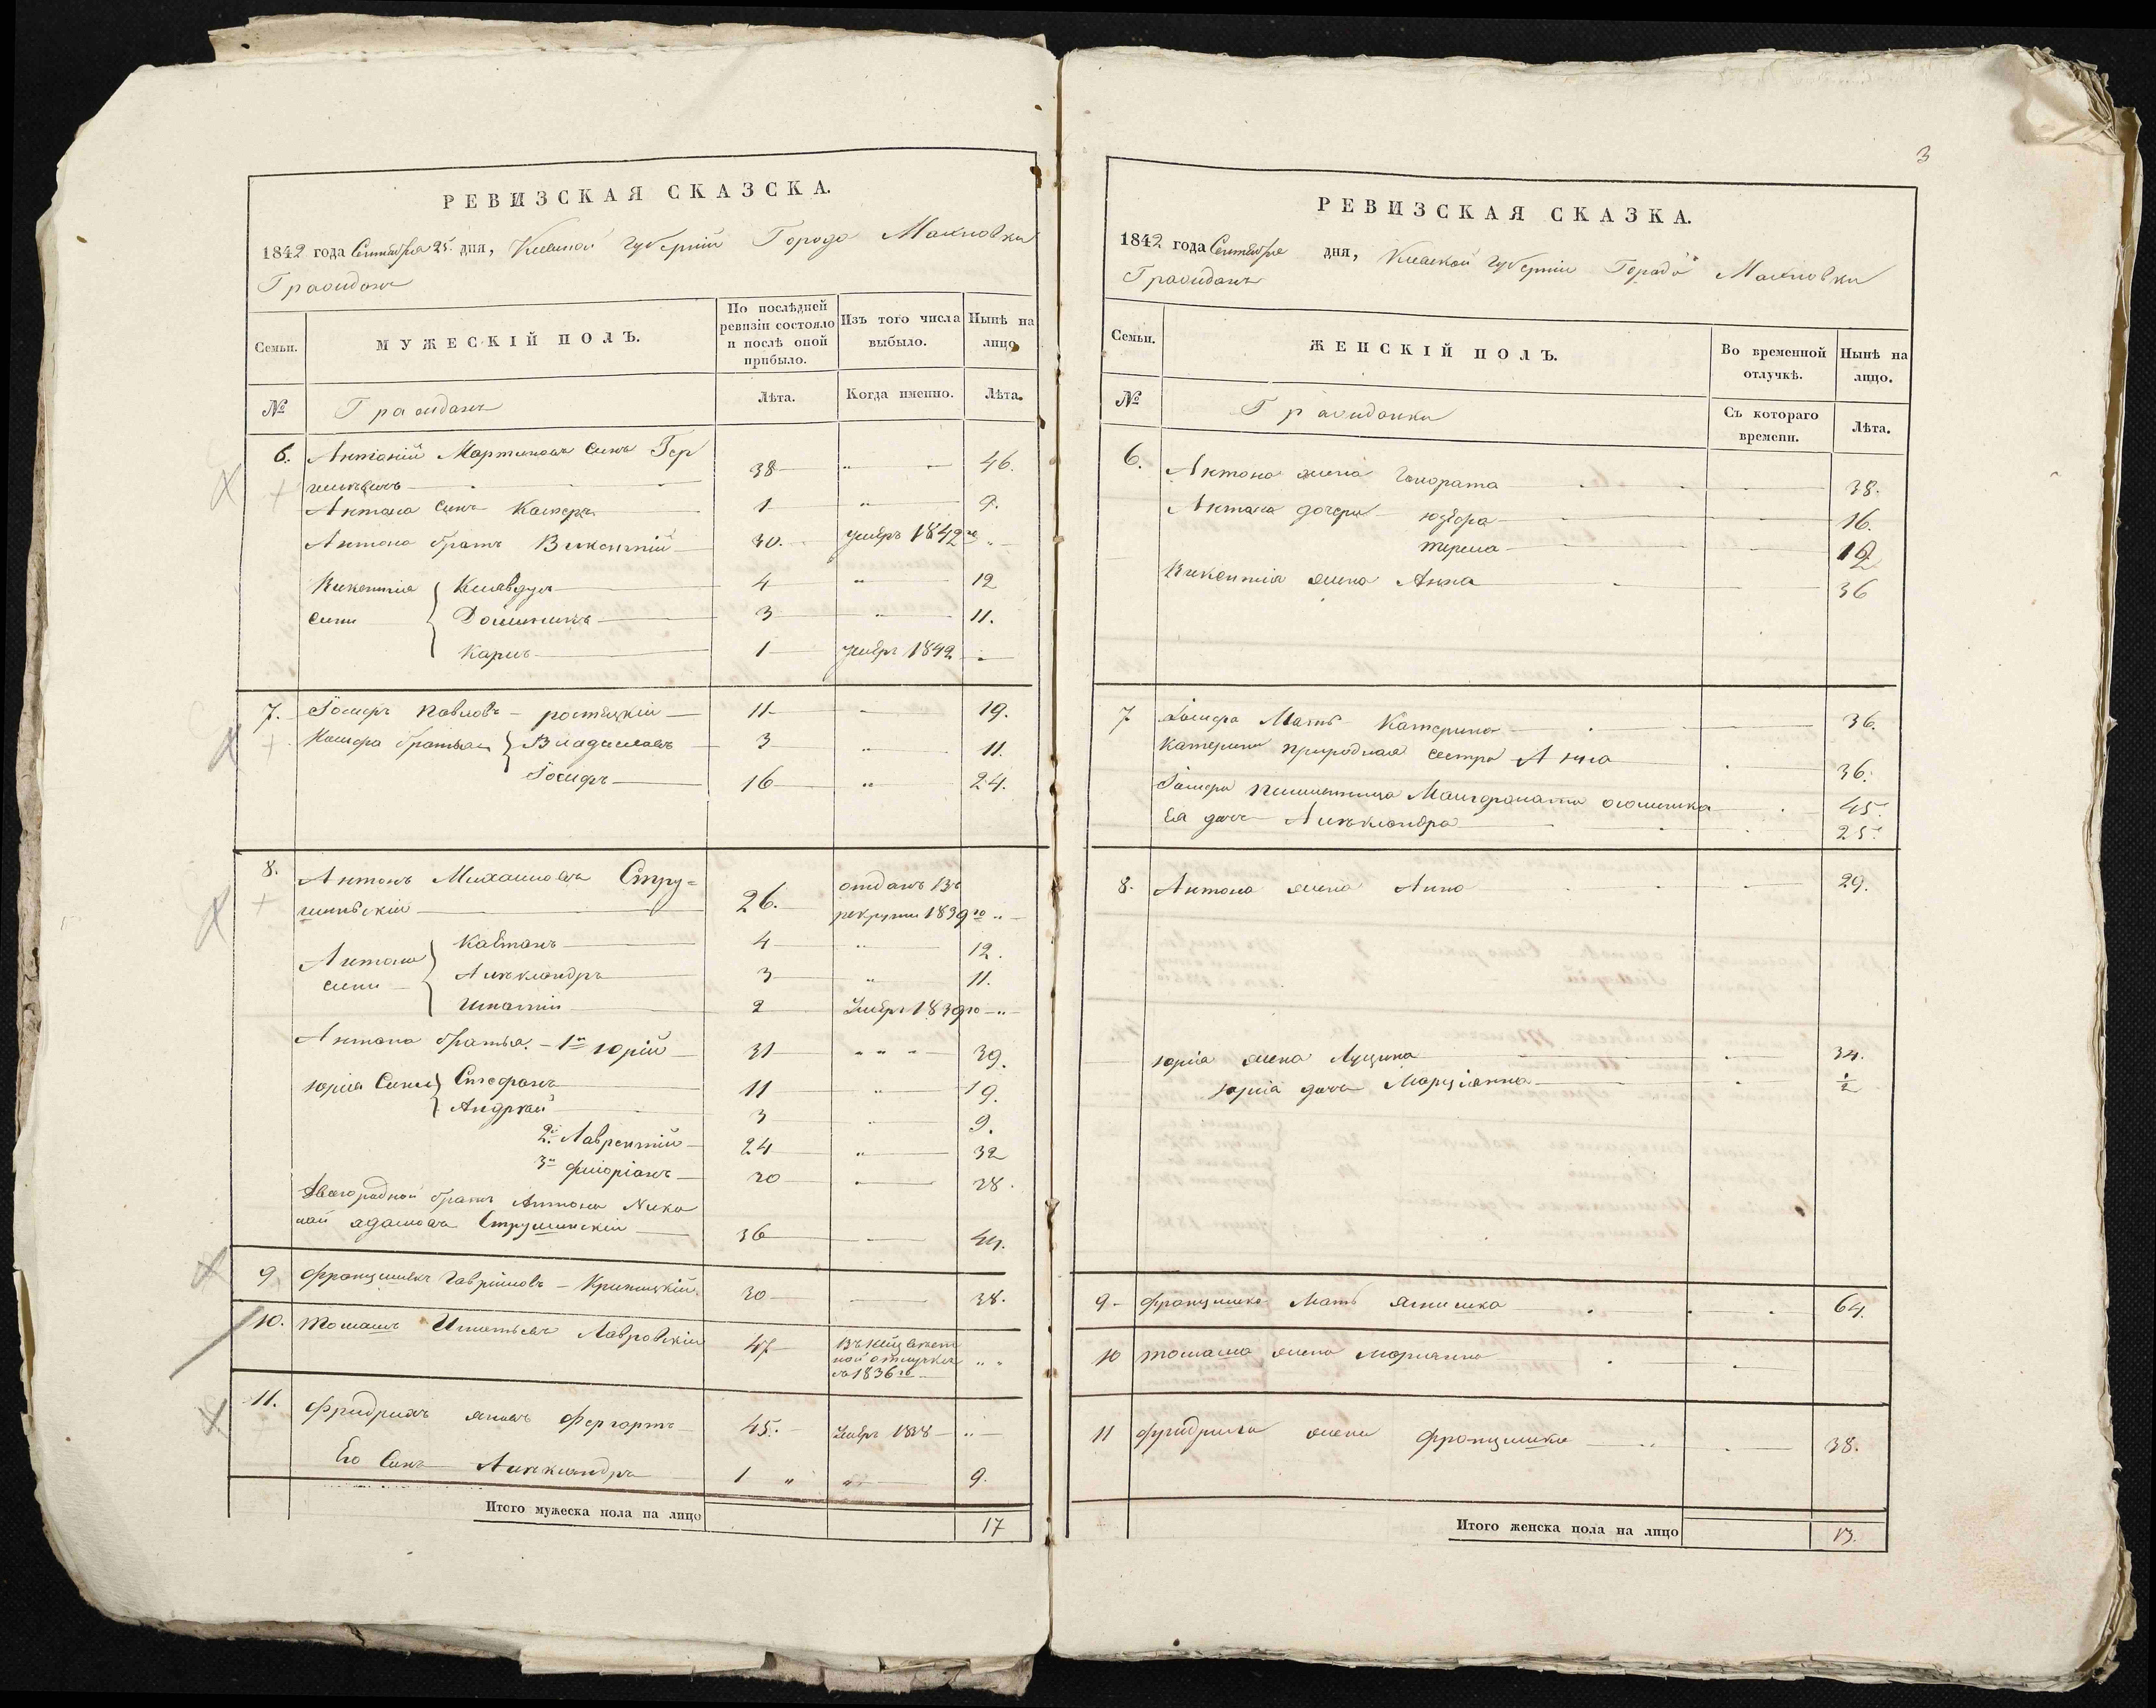 РЕВИЗСКАЯ СКАЗСКА.
1842 года Сентября 25. дня, Киевской Губернии Города Махновки
Гражданъ
Семьи. МУЖЕСКІЙ ПОЛЪ. По послѣдней ревизіи состояло и послѣ оной прибыло. Изъ того числа выбыло. Нынѣ на лицо
№ Гражданъ Лѣта. Когда именно. Лѣта.
6. Антоній Мартиновъ Синъ
38 46.
Антона Синъ 1 9.
Антона братъ Викентий 30. умеръ 1842го
Викентия 4 12
сини Доминикъ 3 11.
Карлъ 1 умеръ 1842
7. Іосифъ Павловъ 11 19.
братья Владиславъ 3 11.
Іосифъ 16 24.
8. Антонъ Михаиловъ Стру=
26. отданъ въ
рекруты 1839го
4 12.
Антона Александръ 3 11.
сини Игнатій 2 умеръ 1839го
Антона братья 1й Юрій 31 39.
Юрія Сини Стефанъ 11 19.
Андрей 3 9.
2й Лаврентий 24 32
3й Флоріанъ 20 28.
Двоюродной братъ Антона Нико
лай Адамовъ Струшинскій 36 44.
9 Францишекъ Гаврииловъ 30 38.
10. Томашъ Игнатьевъ Лавровскій 47
съ 1836го
11. Фридрихъ 45. умеръ 1838
Его Синъ Александръ 1 " " 9.
Итого мужеска пола на лицо 17
3
РЕВИЗСКАЯ СКАЗКА.
1842 года Сентября дня, Киевской Губернии Города Махновки
Гражданъ
Семьи. ЖЕНСКІЙ ПОЛЪ. Во временной отлучкѣ. Нынѣ на лицо.
№ Гражданки Съ котораго времени. Лѣта.
6. Антона жена Гонората 38.
Антона дочери Юзефа 16.
12
Викентія жена Анна 36
7 Іосифа Мать Катерина 36.
Катерины природная сестра Анна 36.
Іосифа 45.
Ея дочь Александра 25.
8. Антона жена Анна 29.
Юрія жена Луцина 34.
Юрія дочь Марціанна 1/2
9 Францишка Мать 64.
10 Томаша жена Марианна
11 Фридриха жена Францишка 38.
Итого женска пола на лицо 13.